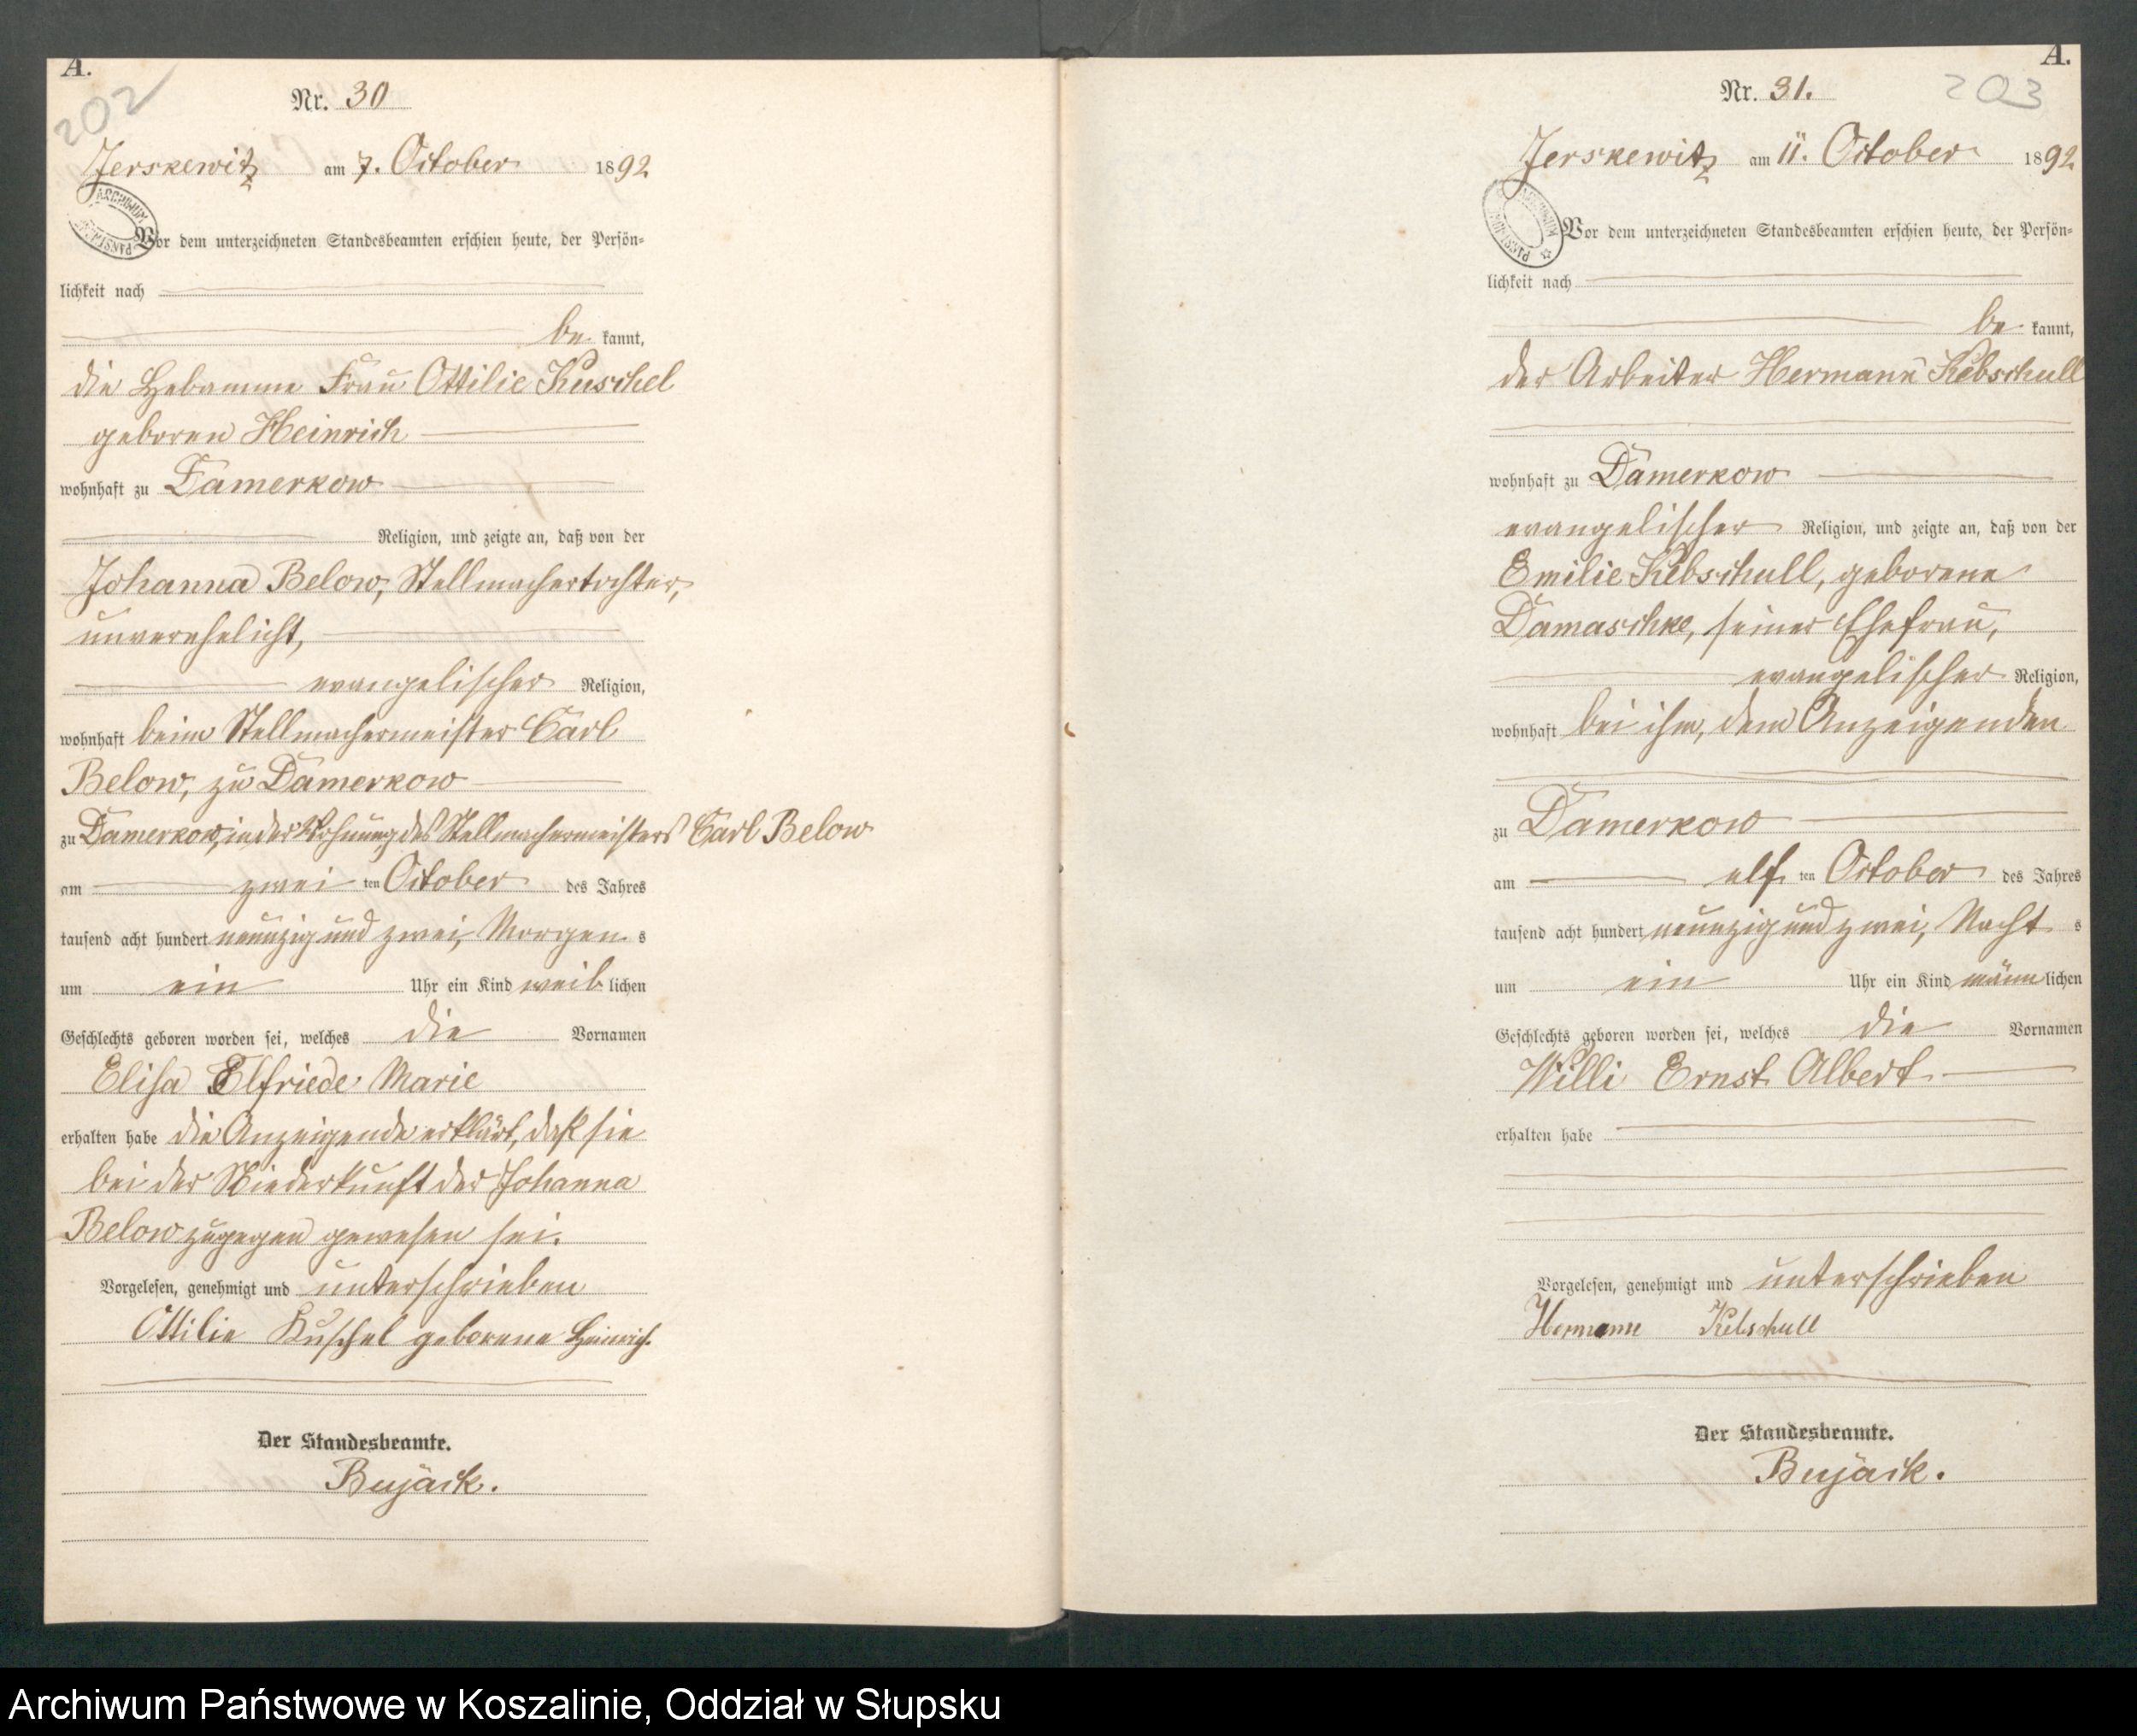 A.
202
Nr. 30
Jerskewitz am 7. October 1892
ARCHIWUM PAŃSTWOWE
Vor dem unterzeichneten Standesbeamten erschien heute, der Persön-
lichkeit nach
be kannt,
die Hebamme Frau Ottilie Kuschel
geboren Heinrich
wohnhaft zu Damerkow
Religion, und zeigte an, daß von der
Johanna Below, Stellmachertochter,
unverehelicht,
evangelischer Religion,
wohnhaft beim Stellmachermeister Carl
Below, zu Damerkow
zu Damerkow, in der Wohnung des Stellmachermeisters Carl Below
am zwei ten October des Jahres
tausend acht hundert neunzig und zwei, Morgen s
um ein Uhr ein Kind weib lichen
Geschlechts geboren worden sei, welches die Vornamen
Elisa Elfriede Marie
erhalten habe die Anzeigende erklärt, daß sie
bei der Niederkunft der Johanna
Below zugegen gewesen sei.
Vorgelesen, genehmigt und unterschrieben
Ottilie Kuschel geborene Heinrich.
Der Standesbeamte.
Bujack.
A.
203
Nr. 31.
Jerskewitz am 11. October 1892
ARCHIWUM PAŃSTWOWE
Vor dem unterzeichneten Standesbeamten erschien heute, der Persön-
lichkeit nach
be kannt,
der Arbeiter Hermann Kebschull
wohnhaft zu Damerkow
evangelischer Religion, und zeigte an, daß von der
Emilie Kebschull, geborene
Damaschke, seiner Ehefrau,
evangelischer Religion,
wohnhaft bei ihm, dem Anzeigenden
zu Damerkow
am elf ten October des Jahres
tausend acht hundert neunzig und zwei, Nacht s
um ein Uhr ein Kind männ lichen
Geschlechts geboren worden sei, welches die Vornamen
Willi Ernst Albert
erhalten habe
Vorgelesen, genehmigt und unterschrieben
Hermann Kebschull
Der Standesbeamte.
Bujack.
Archiwum Państwowe w Koszalinie, Oddział w Słupsku